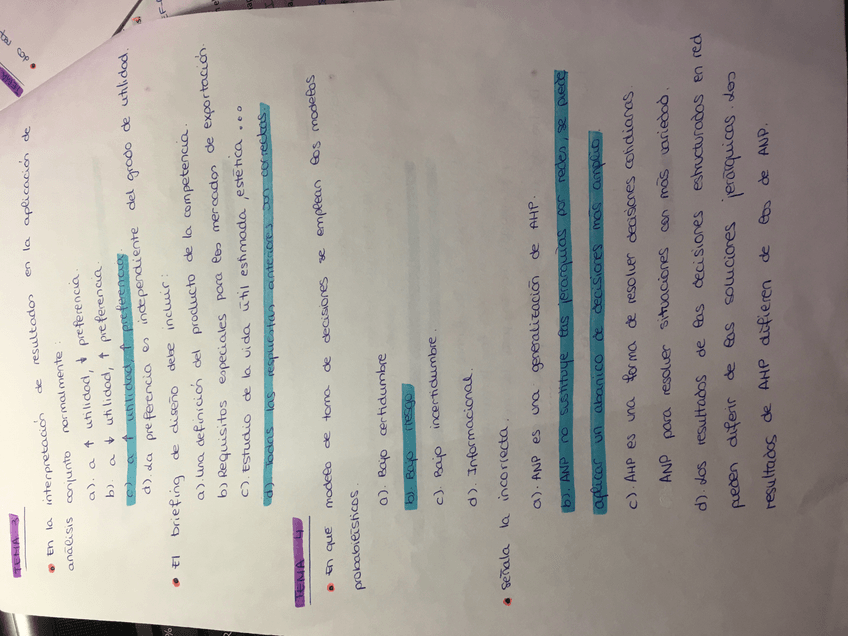 TEMA 3
• En la interpretación de resultados en la aplicación de
análisis conjunto normalmente:
a). a ↑ utilidad, ↓ preferencia.
b). a ↓ utilidad, ↑ preferencia.
c) a ↑ utilidad, ↑ preferencia.
d). La preferencia es independiente del grado de utilidad.
• El briefing de diseño debe incluir:
a). Una definición del producto de la competencia.
b) Requisitos especiales para los mercados de exportación.
c). Estudio de la vida útil estimada, estética...
d). Todas las respuestas anteriores son correctas.
TEMA 4
• En que modelo de toma de decisiones se emplean los modelos
probabilísticos.
a). Bajo certidumbre
b) Bajo riesgo
c). Bajo incertidumbre.
d). Informacional.
• Señala la incorrecta.
a). ANP es una generalización de AHP.
b). ANP no sustituye las jerarquías por redes se puede
aplicar un abanico de decisiones más amplio.
c). AHP es una forma de resolver decisiones cotidianas
ANP para resolver situaciones con más variedad.
d). Los resultados de las decisiones estructuradas en red
pueden diferir de las soluciones jerárquicas. Los
resultados de AHP difieren de los de ANP.